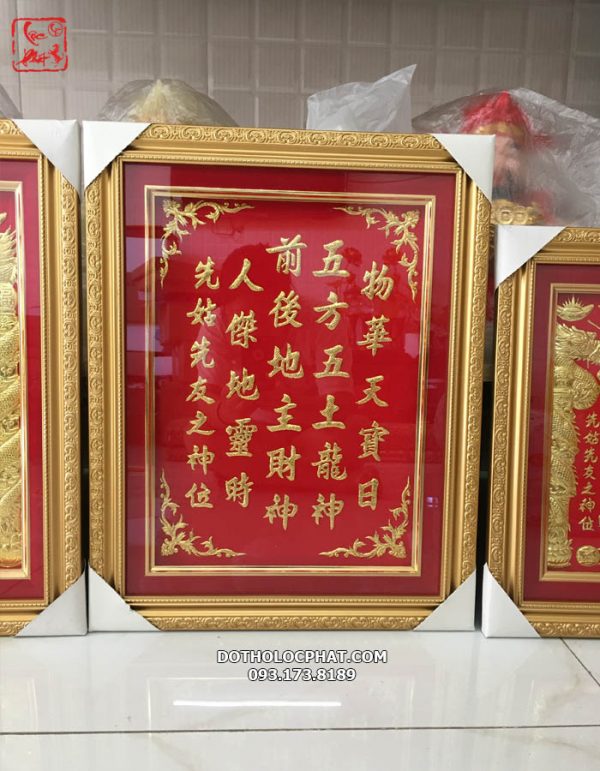 物華天寳日
五方五土龍神
前後地主財神
人傑地靈時
先姑先友之神位
先姑先友之神位
DOTHOLOCPHAT.COM
093.173.8189